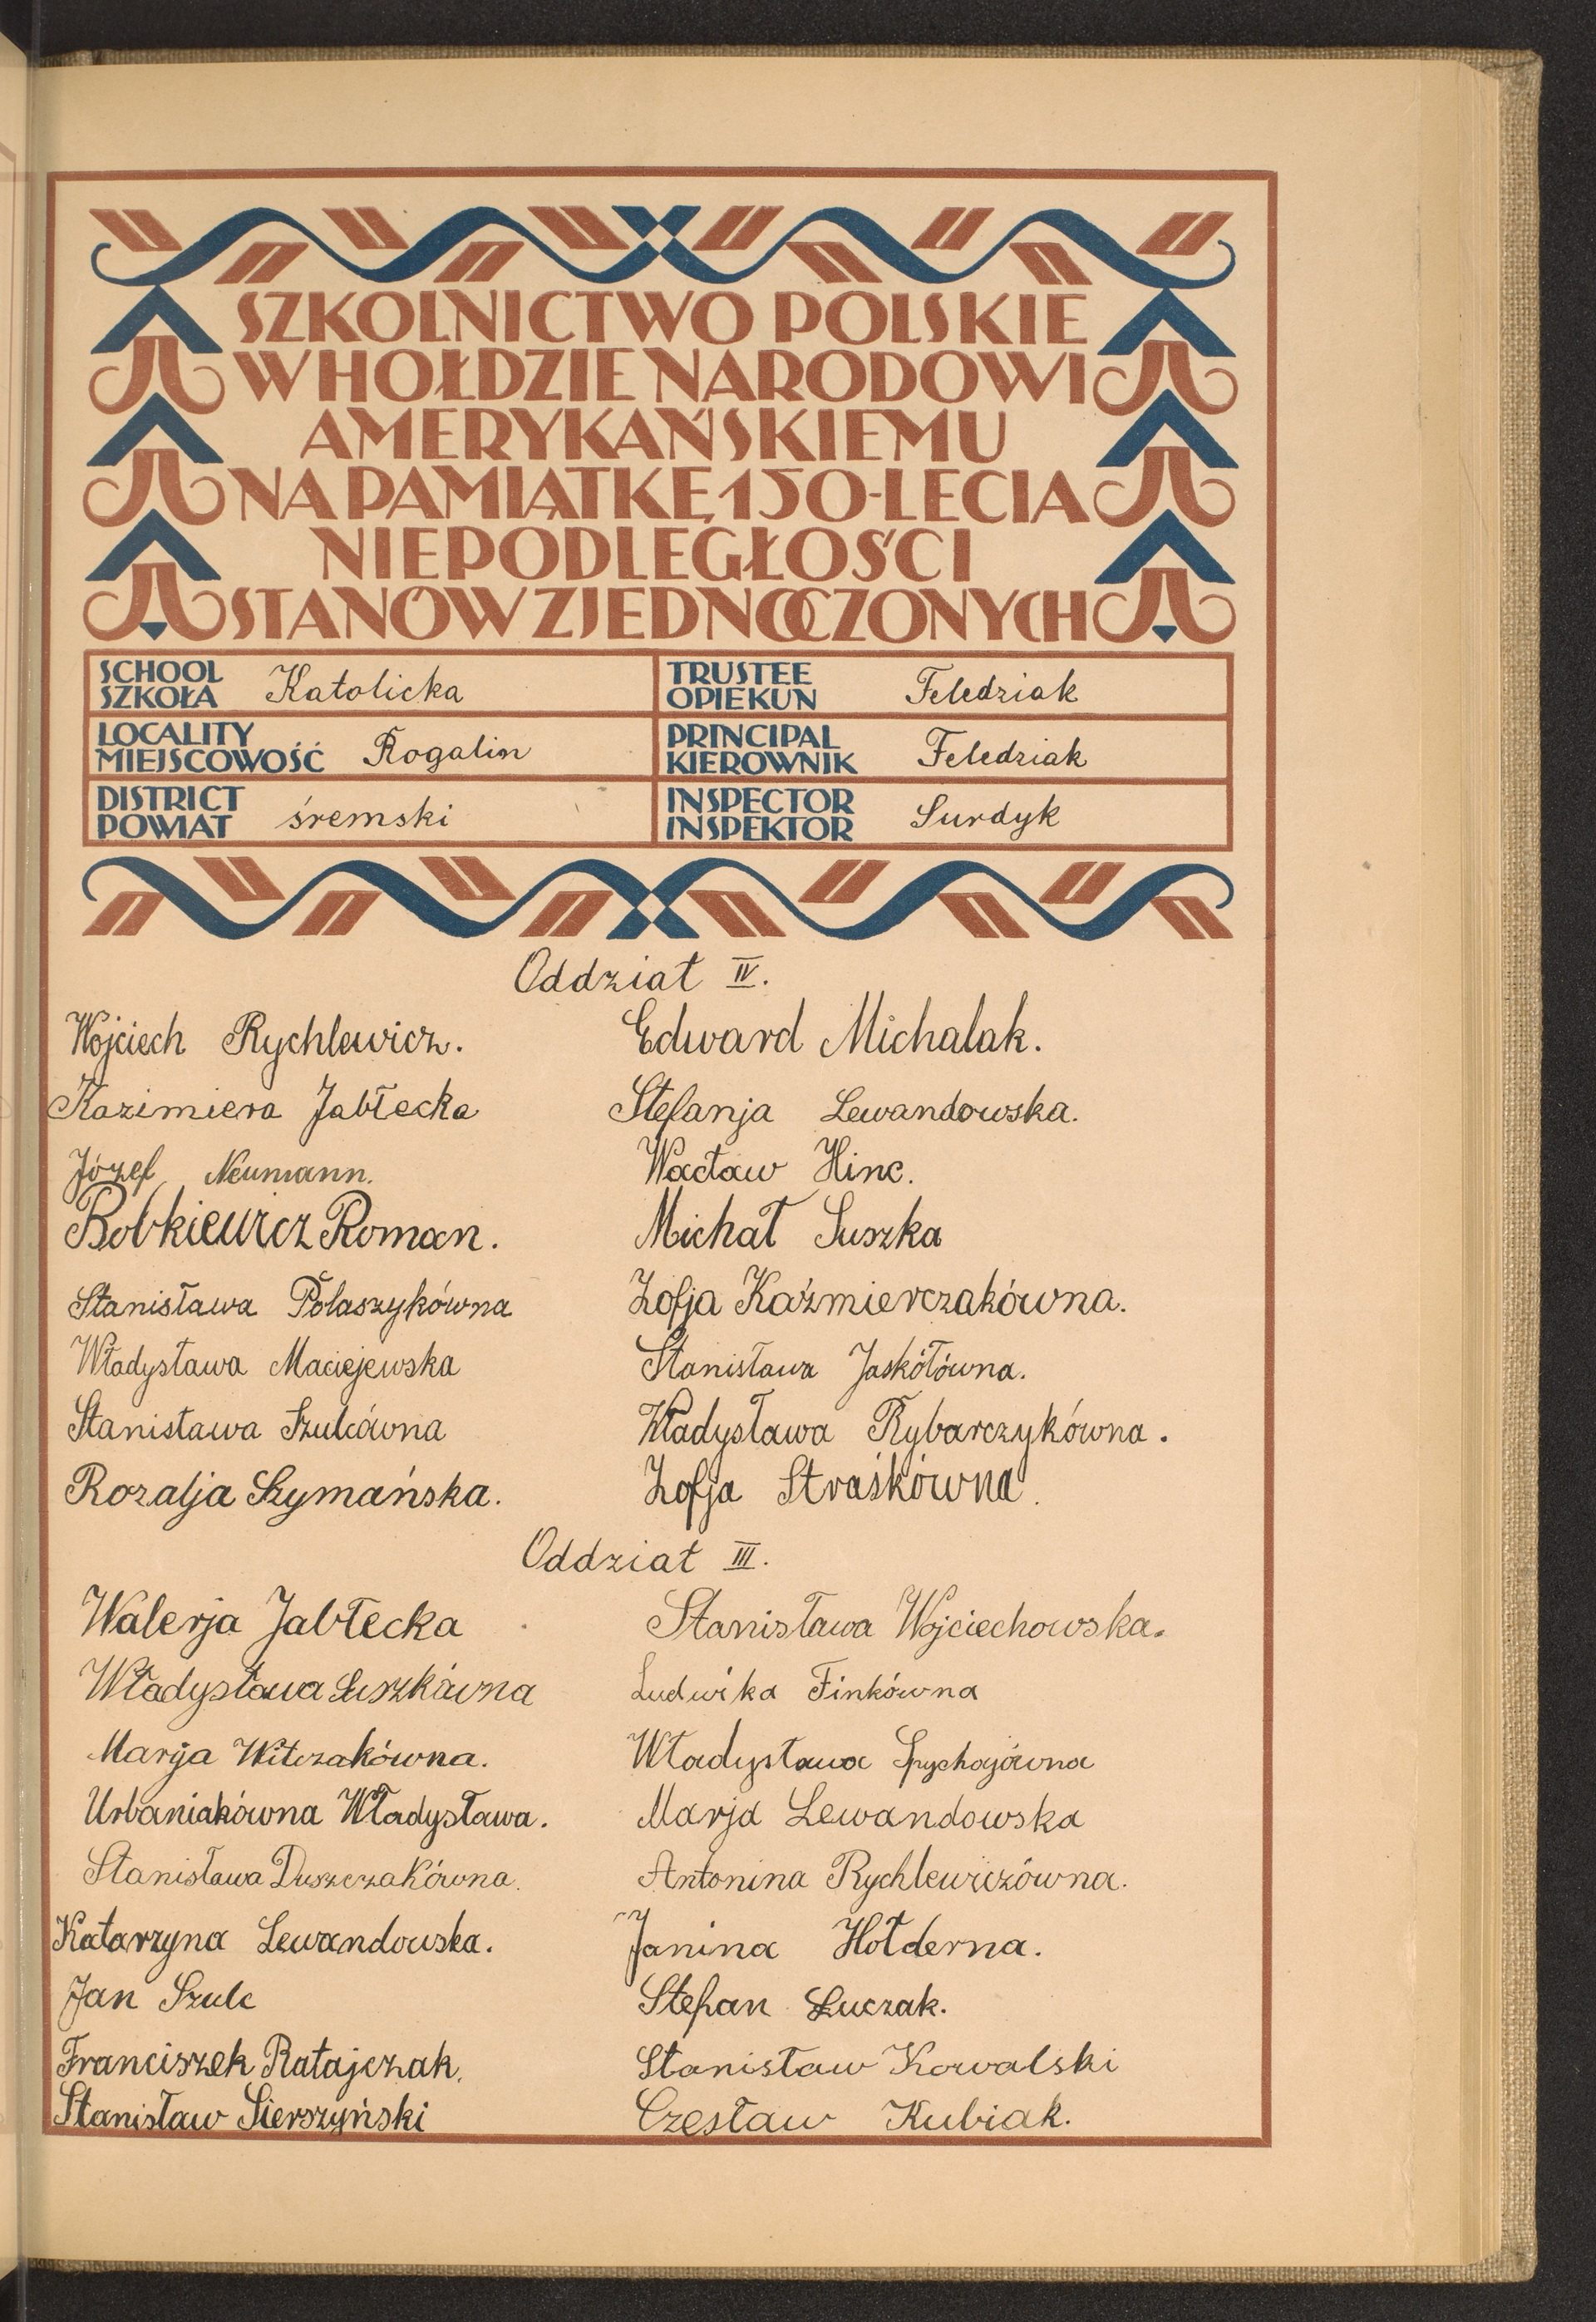 SZKOLNICTWO POLSKIE
W HOŁDZIE NARODOWI
AMERYKAŃSKIEMU
NA PAMIĄTKĘ 150-LECIA
NIEPODLEGŁOŚCI
STANÓW ZJEDNOCZONYCH
SCHOOL
SZKOŁA Katolicka
TRUSTEE
OPIEKUN Feledziak
LOCALITY
MIEJSCOWOŚĆ Rogalin
PRINCIPAL
KIEROWNIK Feledziak
DISTRICT
POWIAT śremski
INSPECTOR
INSPEKTOR Surdyk
Oddział IV.
Wojciech Rychlewicz. Edward Michalak.
Kazimiera Jabłecka Stefanja Lewandowska.
Józef Neumann. Wacław Hinc.
Bobkiewicz Roman. Michał Suszka
Stanisława Polaszykówna Zofja Kaźmierczakówna.
Władysława Maciejewska Stanisława Jaskółówna.
Stanisława Szulcówna Władysława Rybarczykówna.
Rozalja Szymańska. Zofja Straśkówna.
Oddział III.
Walerja Jabłecka Stanisława Wojciechowska.
Władysława Suszkówna Ludwika Finkówna
Marja Witczakówna. Władysława Spychajówna
Urbaniakówna Władysława. Marja Lewandowska
Stanisława Duszczakówna. Antonina Rychlewiczówna.
Katarzyna Lewandowska. Janina Hołderna.
Jan Szulc Stefan Łuczak.
Franciszek Ratajczak. Stanisław Kowalski
Stanisław Sierszyński Czesław Kubiak.